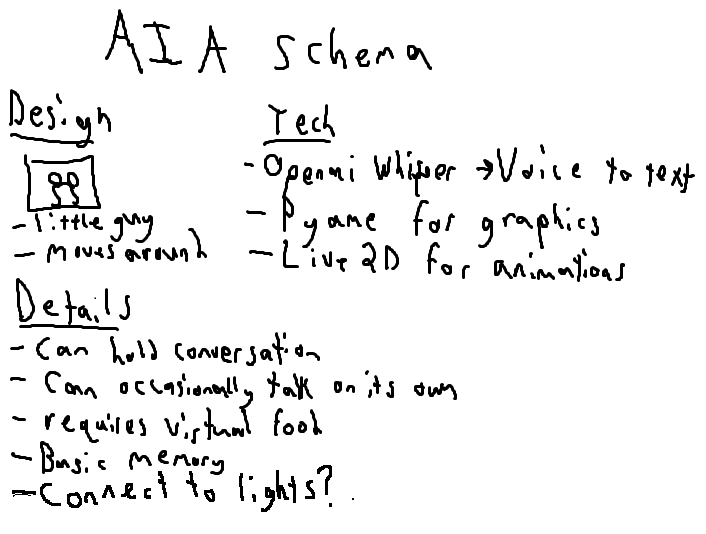 AIA Schema
Design
- little guy
- moves around
Tech
- Openai Whisper → Voice to text
- Pygame for graphics
- Live 2D for animations
Details
- Can hold conversation
- Can occasionally talk on its own
- requires virtual food
- Basic memory
- Connect to lights?